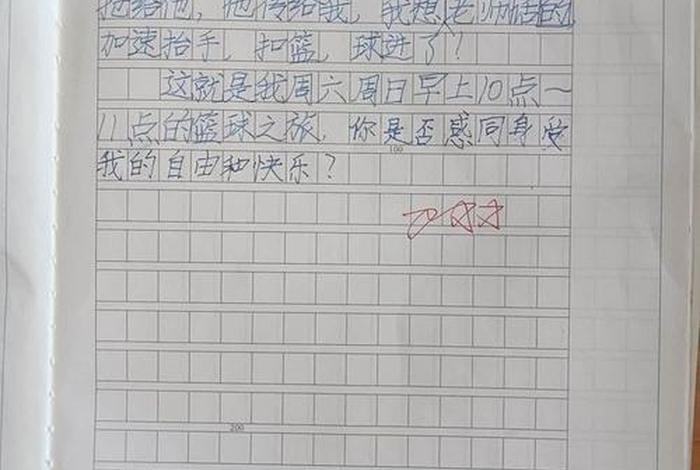 他传给我，我想老师话的
加速抬手，扣篮，球进了！
这就是我周六周日早上10点～
11点的篮球之旅，你是否感同身受
100
我的自由和快乐？
200